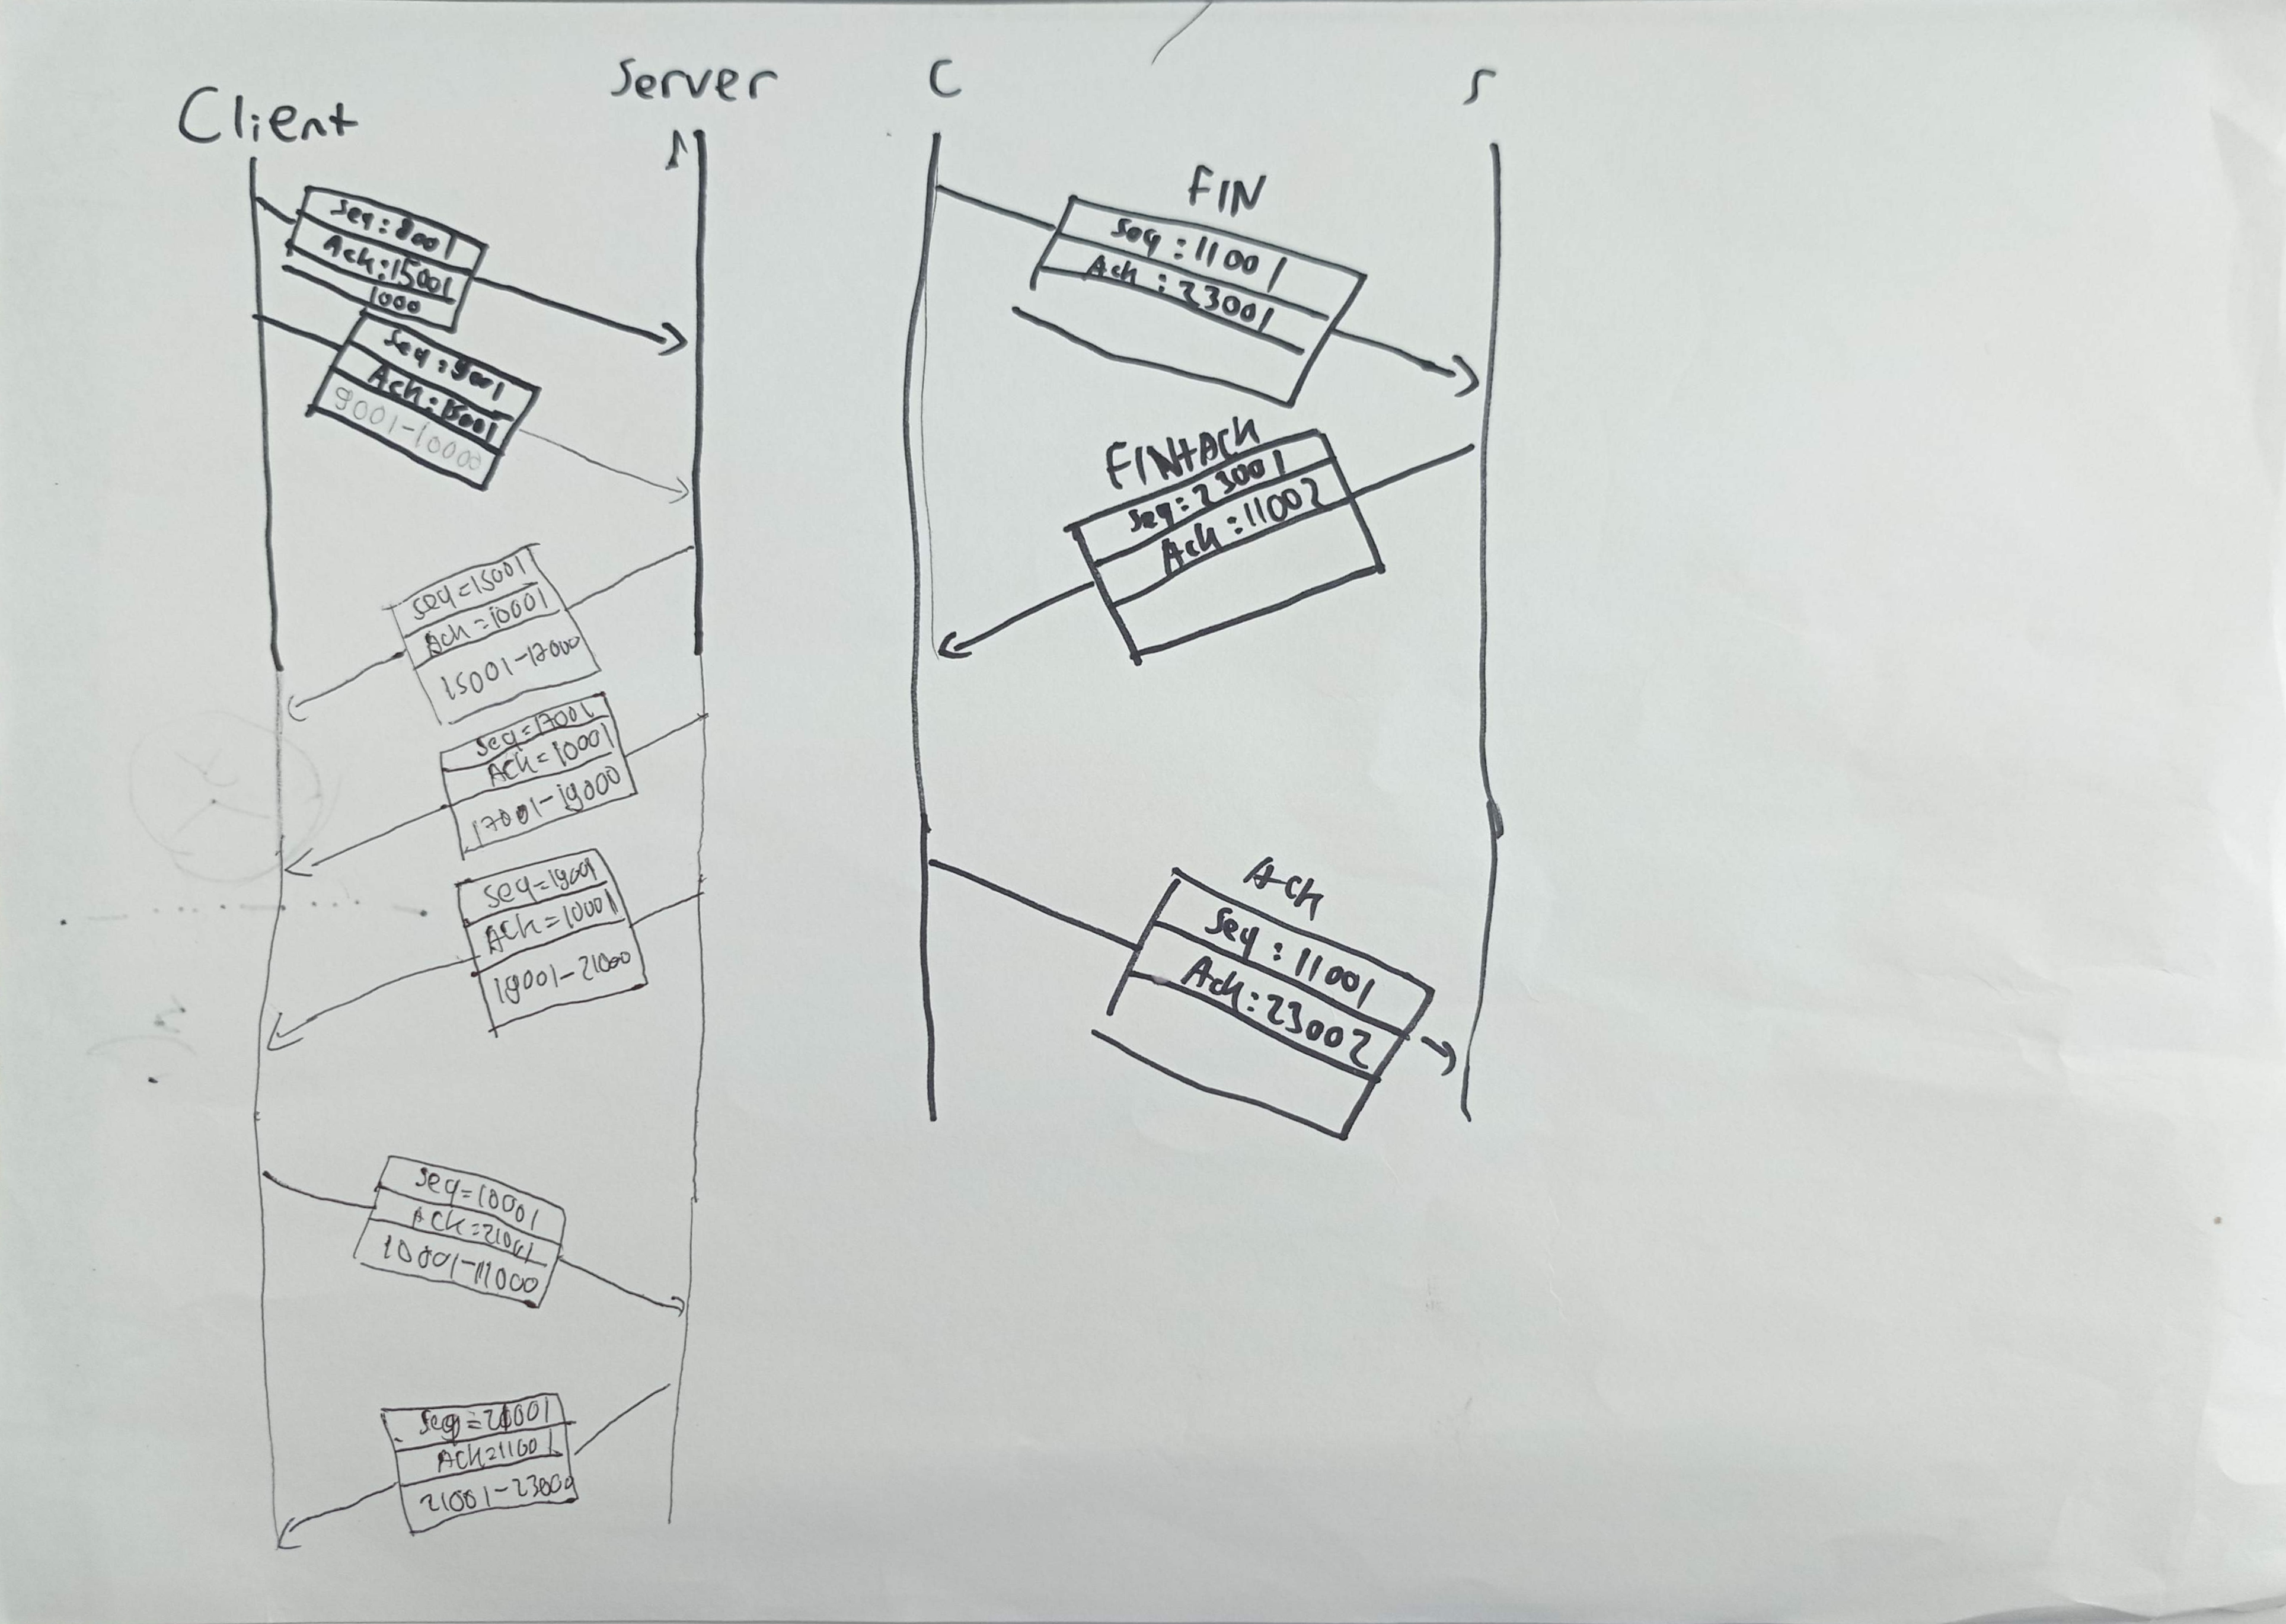 Client
Server
Seq:8001
Ack:15001
1000
Seq:9001
Ack:15001
9001-10000
Seq=15001
Ack=10001
15001-17000
Seq=17001
Ack=10001
17001-19000
Seq=19001
Ack=10001
19001-21000
Seq=10001
Ack=21001
10001-11000
Seq=21001
Ack=11001
21001-23000
C
S
FIN
Seq:11001
Ack:23001
FIN+Ack
Seq:23001
Ack:11002
Ack
Seq:11001
Ack:23002